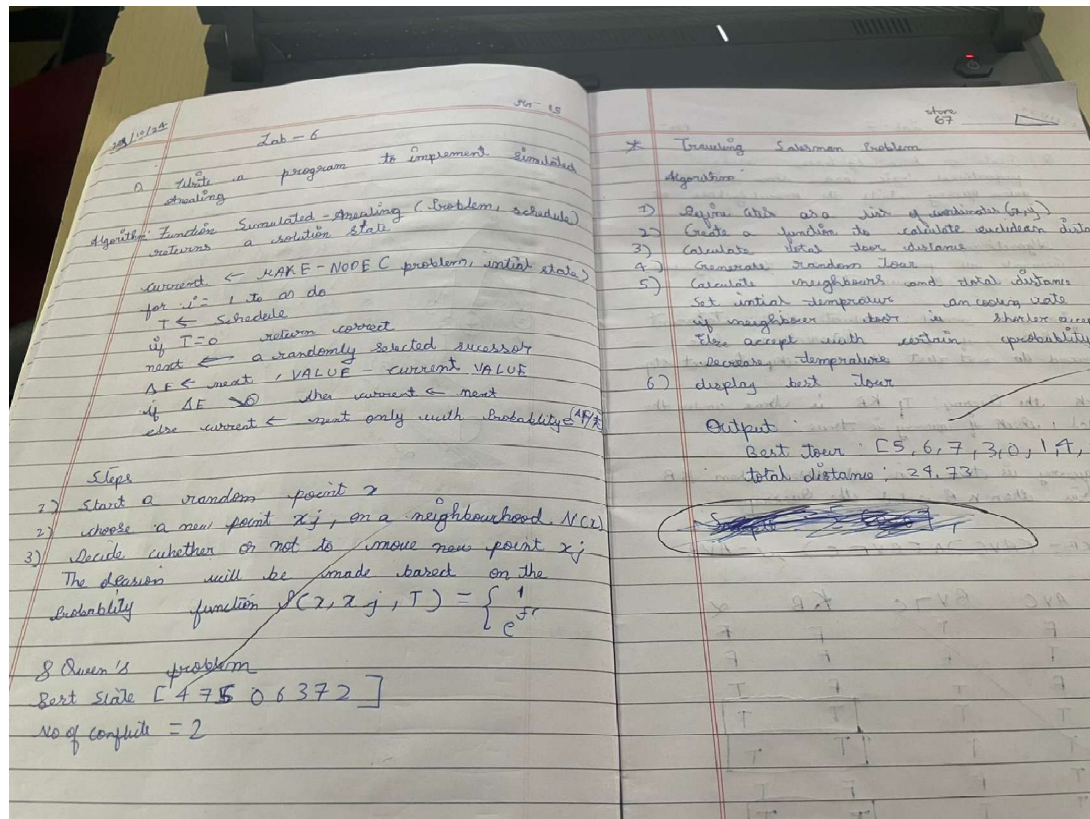 Lab - 6
Write a program to implement Simulated
Anealing
Algorithm: Function Simulated-Anealing (Problem, schedule)
returns a solution state
current ← MAKE-NODE C problem, intial state)
for i = 1 to ∞ do
T ← Schedule
if T=0 return correct
next ← a randomly selected sucessor
ΔE ← next, VALUE - current VALUE
if ΔE >0 then current ← next
else current ← next only with Probablity
Steps
1) Start a random point x
2) choose a new point xj, on a neighbourhood N(x)
3) Decide whether or not to move new point xj
The deasion will be made based on the
Probablity function (x, xj, T) = { 1
e
8 Queen's problem
Best State [ 4 7 5 0 6 3 7 2 ]
No of conflicts = 2
store
67
* Traveling Salesman Problem
Algorithm
1) Define cities as a list of (x, y)
2) Create a function to calculate euclidean dista
3) Calculate total toor distance
4) Generate random Tour
5) Calculate neighbours and total distance
Set intial temprature an cooling rate
if neighbour toor is shorter acce
Else accept with certain probablity
Decrease temprature
6) display best Tour
Output
Best tour : [5, 6, 7, 3, 0, 1, 4,
total distance : 24.73